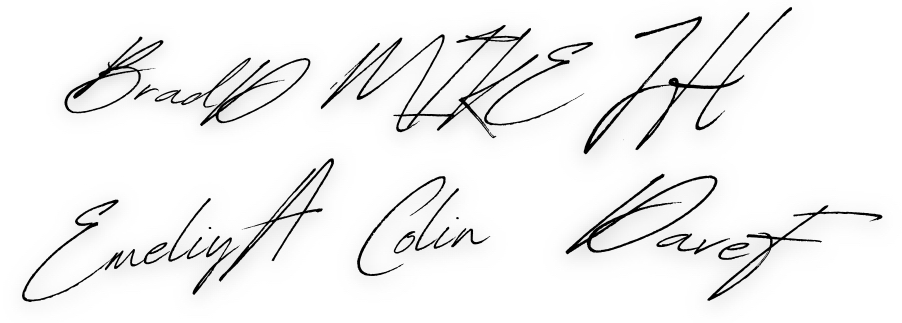 BradD MIKE JH
EmeliyA Colin DaveT